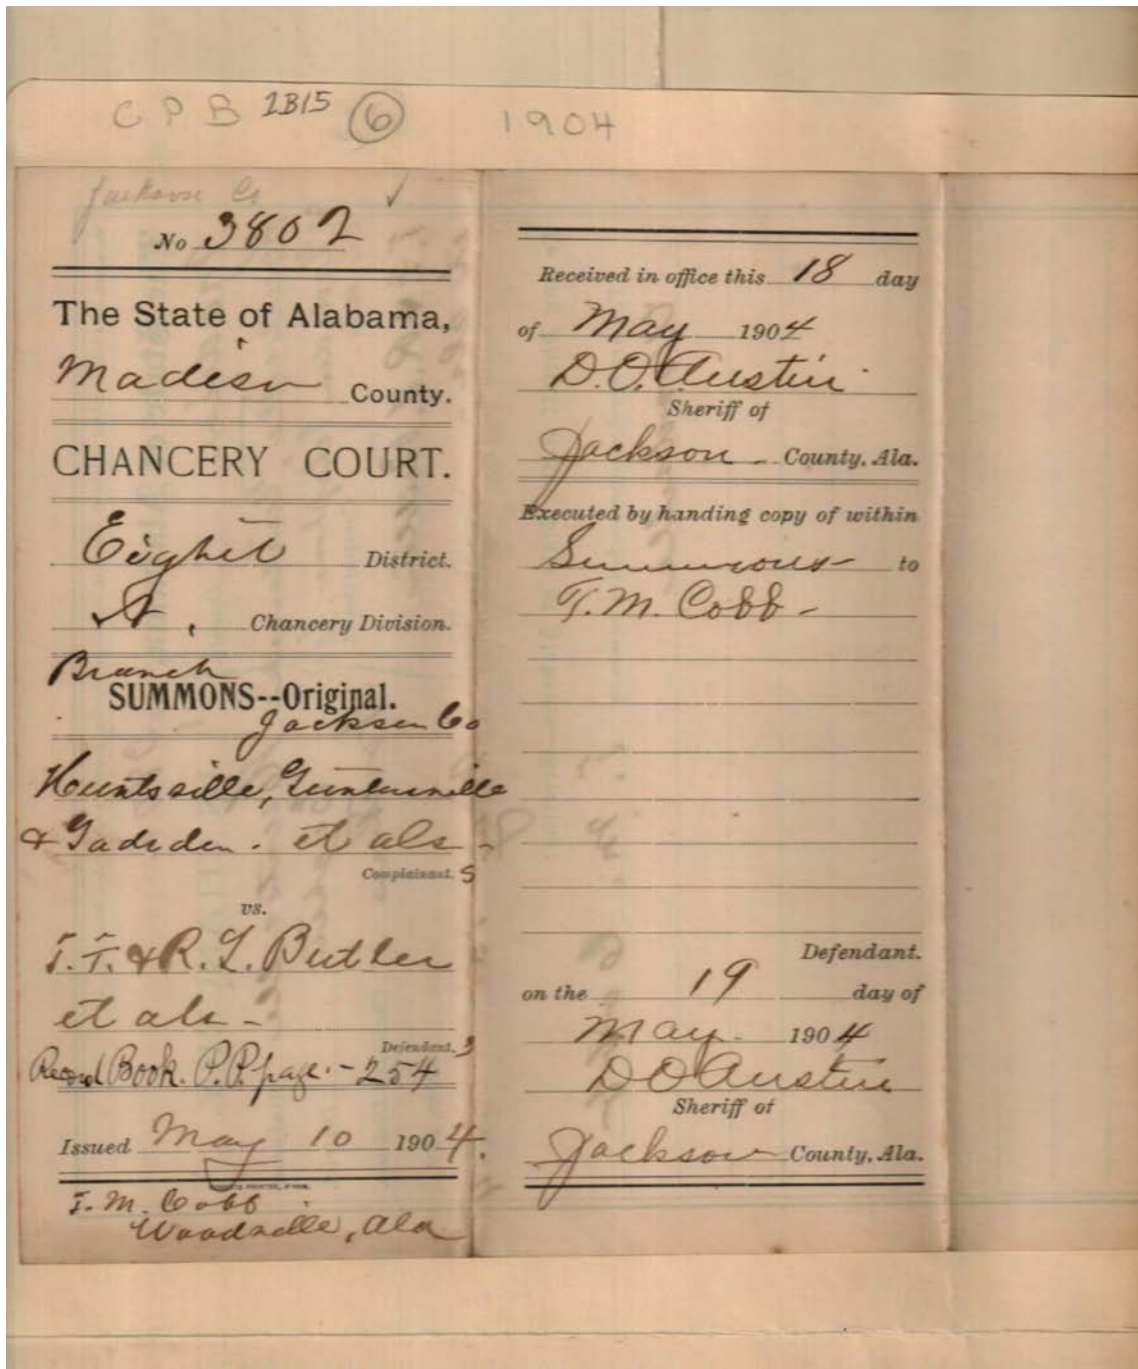 C P B 1B15 6 1904
Jackson Co
No 3802
The State of Alabama,
Madison County.
CHANCERY COURT.
Eighth District.
N. Chancery Division.
Branch
SUMMONS--Original.
Jackson Co
Huntsville, Guntersville
& Gadsden. et als -
Complainant. s
vs.
T. T. & R. L. Butler
et als -
Defendant. s
Record Book. P.P. page. - 254
Issued May 10 1904.
T. M. Cobb
Woodville, Ala
Received in office this 18 day
of May 1904
D. O. Austin
Sheriff of
Jackson County, Ala.
Executed by handing copy of within
Summons to
T. M. Cobb -
Defendant.
on the 19 day of
May 1904
D O Austin
Sheriff of
Jackson County, Ala.